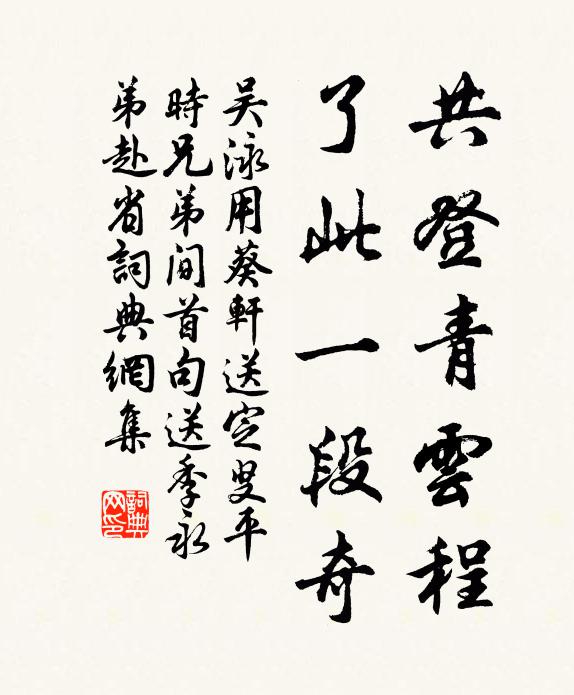 共登青雲程
了此一段奇
吴泳用葵軒送定叟平
時兄弟间首句送季永
弟赴省詞典網集
詞典网印